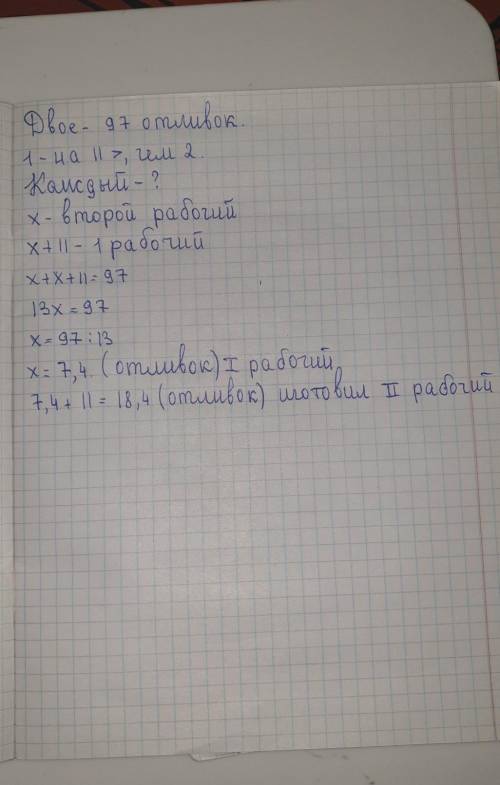 Двое - 97 отливок.
1 - на 11 >, чем 2.
Каждый - ?
x - второй рабочий
x + 11 - 1 рабочий
x + x + 11 = 97
13x = 97
x = 97 : 13
x = 7,4 (отливок) I рабочий
7,4 + 11 = 18,4 (отливок) изготовил II рабочий